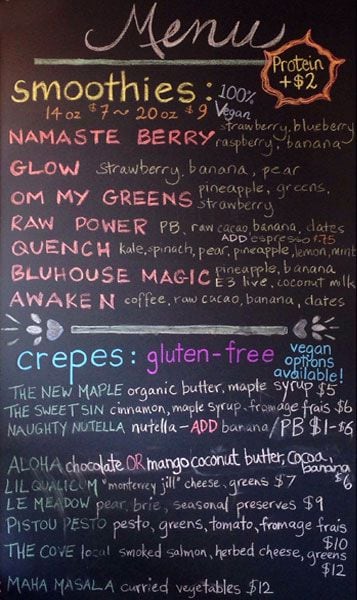 Menu
Protein
+$2
smoothies: 100%
Vegan
14 oz $7 ~ 20 oz $9
NAMASTE BERRY strawberry, blueberry
raspberry, banana
GLOW strawberry, banana, pear
OM MY GREENS pineapple, greens,
strawberry
RAW POWER PB, raw cacao, banana, dates
ADD espresso 1.75
QUENCH kale, spinach, pear, pineapple, lemon, mint
BLUHOUSE MAGIC pineapple, banana
E3 live, coconut milk
AWAKEN coffee, raw cacao, banana, dates
crepes: gluten-free vegan
options
available!
THE NEW MAPLE organic butter, maple syrup $5
THE SWEET SIN cinnamon, maple syrup, fromage frais $6
NAUGHTY NUTELLA nutella - ADD banana/PB $1 - $6
ALOHA chocolate OR mango coconut butter, cocoa,
banana
$6
LIL QUALICUM "monterrey jill" cheese, greens $7
LE MEADOW pear, brie, seasonal preserves $9
PISTOU PESTO pesto, greens, tomato, fromage frais
$10
THE COVE local smoked salmon, herbed cheese, greens
$12
MAHA MASALA curried vegetables $12